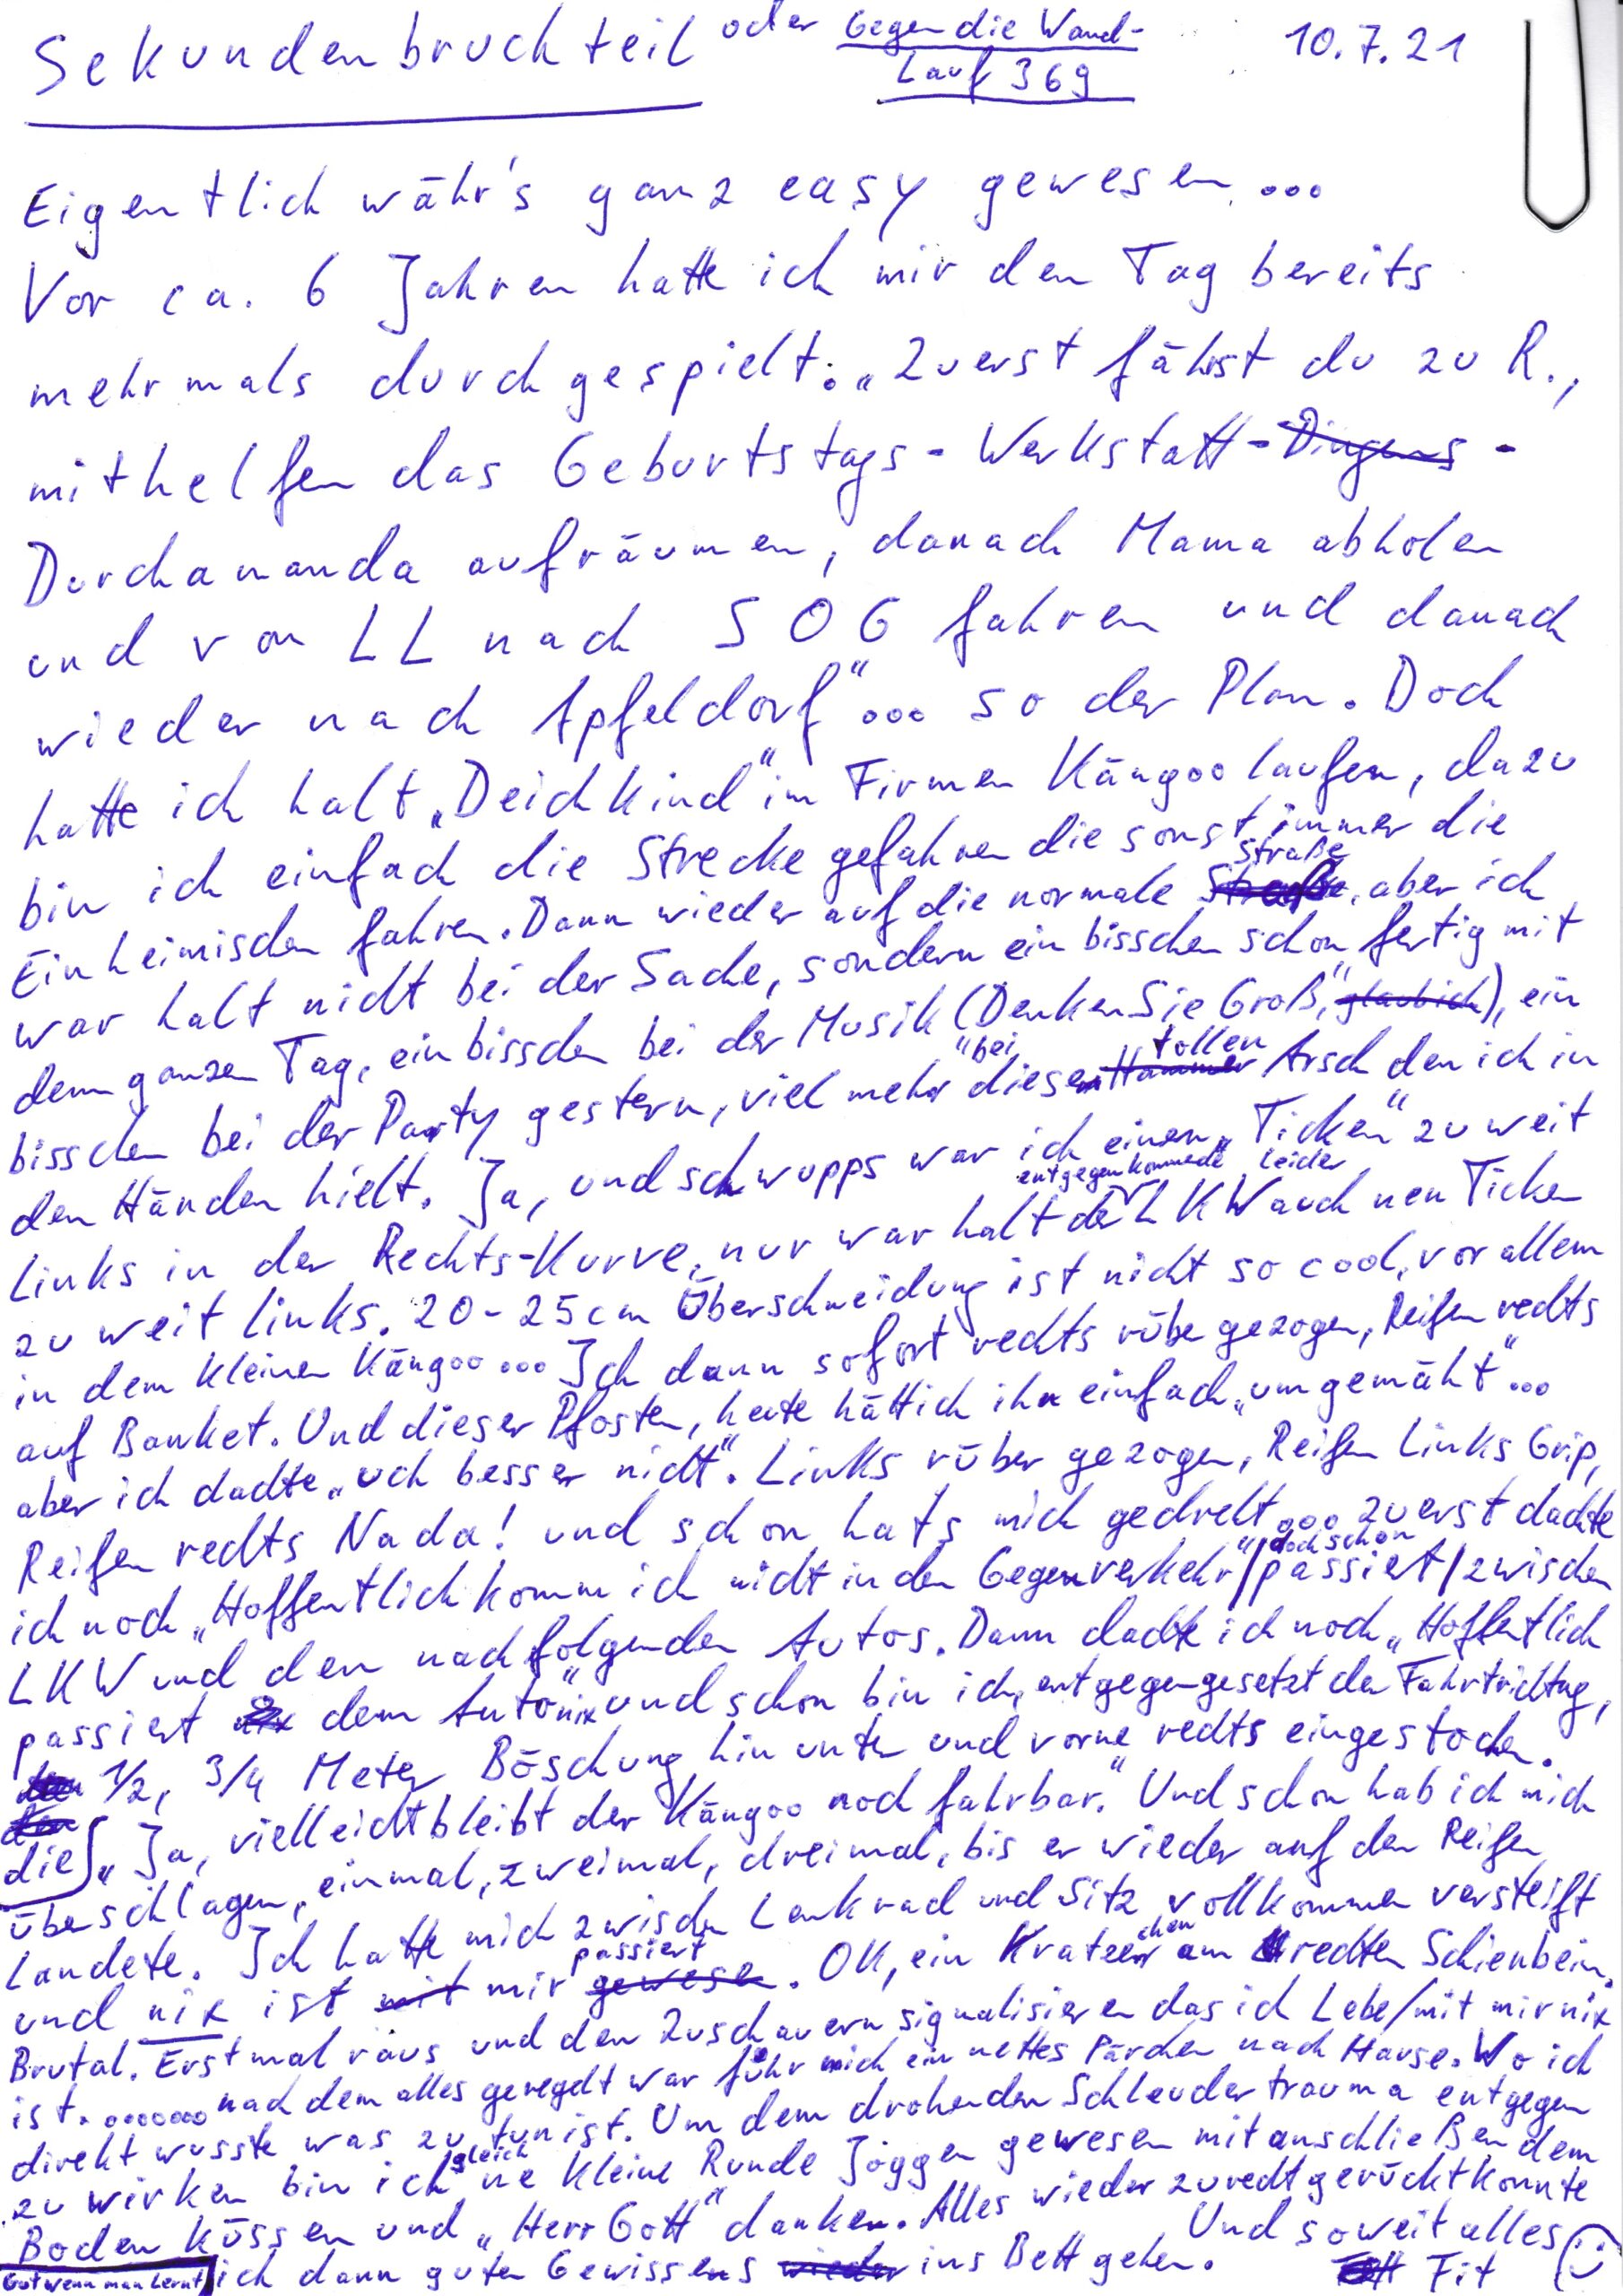 Sekundenbruchteil oder Gegen die Wand- 10.7.21
Lauf 369
Eigentlich währ's ganz easy gewesen...
Vor ca. 6 Jahren hatte ich mir den Tag bereits
mehrmals durchgespielt: „Zuerst fährst du zu R.,
mithelfen das Geburtstags-Werkstatt-Dingens-
Durchananda aufräumen, danach Mama abholen
und von LL nach SOG fahren und danach
wieder nach Apfeldorf"... so der Plan. Doch
hatte ich halt „Deichkind" im Firmen Kängoo laufen, dazu
bin ich einfach die Strecke gefahren die sonst immer die
Einheimischen fahren. Dann wieder auf die normale Straße, aber ich
war halt nicht bei der Sache, sondern ein bisschen schon fertig mit
dem ganzen Tag, ein bisschen bei der Musik („Denken Sie Groß", glaub ich), ein
bisschen bei der Party gestern, viel mehr "bei diesem Hammer tollen Arsch den ich in
den Händen hielt. Ja, und schwupps war ich einen „Ticken" zu weit
Links in der Rechts-Kurve, nur war halt der entgegenkommende LKW leider auch nen Ticken
zu weit links. 20-25cm Überschneidung ist nicht so cool, vor allem
in dem kleinen Kängoo... Ich dann sofort rechts rübe gezogen, Reifen rechts
auf Banket. Und dieser Pfosten, heute hätt ich ihn einfach „umgemäht"...
aber ich dachte „uch besser nicht". Links rüber gezogen, Reifen Links Grip,
Reifen rechts Nada! und schon hats mich gedreht... zuerst dachte
ich noch „Hoffentlich komm ich nicht in den Gegenverkehr"/doch schon passiert/zwischen
LKW und den nachfolgenden Autos. Dann dachte ich noch „Hoffentlich
passiert dem Auto nix" und schon bin ich, entgegengesetzt der Fahrtrichtug,
die 1/2, 3/4 Meter Böschung hinunter und vorne rechts eingestochen.
„Ja, vielleicht bleibt der Kängoo noch fahrbar." Und schon hab ich mich
überschlagen, einmal, zweimal, dreimal, bis er wieder auf den Reifen
Landete. Ich hatte mich zwischen Lenkrad und Sitz vollkommen versteift
und nix ist mit mir gewesen passiert. OK, ein Kratzerchen am rechten Schienbein.
Brutal. Erstmal raus und den Zuschauern signalisieren das ich Lebe/mit mir nix
ist........ nach dem alles geregelt war fuhr mich ein nettes Pärchen nach Hause. Wo ich
direkt wusste was zu tun ist. Um dem drohenden Schleudertrauma entgegen
zu wirken bin ich gleich ne kleine Runde Joggen gewesen mit anschließendem
Boden küssen und „Herr Gott" danken. Alles wieder zurecht gerückt konnte
ich dann guten Gewissens wieder ins Bett gehen. Und soweit alles
Gut wenn man Lernt
Fit